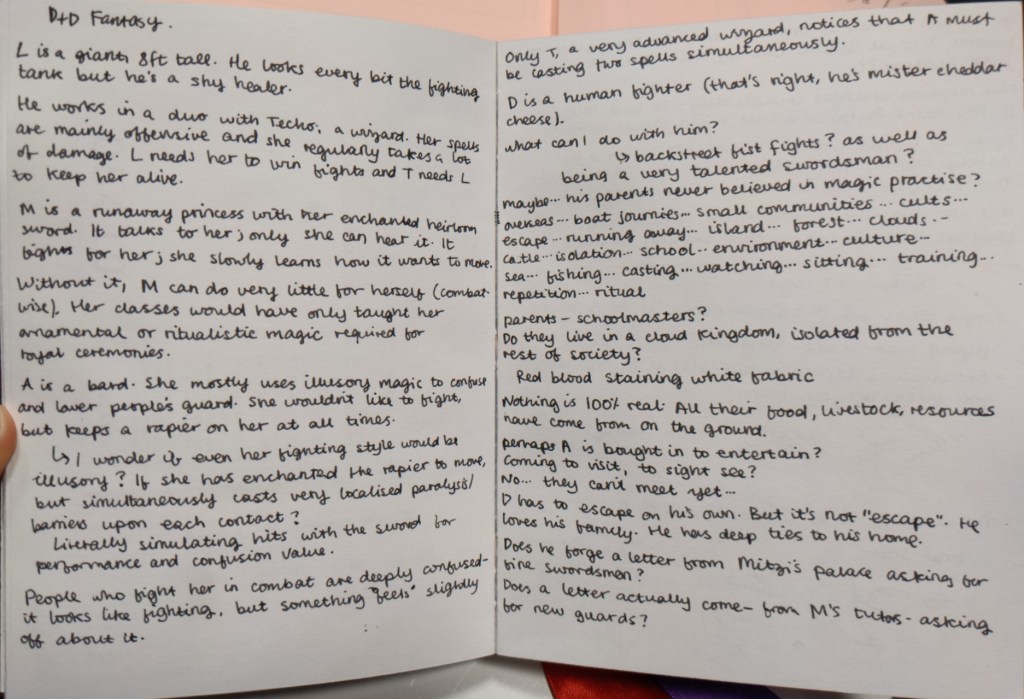 D+D Fantasy.
L is a giant, 8ft tall. He looks every bit the fighting
tank but he's a shy healer.
He works in a duo with Techo, a wizard. Her spells
are mainly offensive and she regularly takes a lot
of damage. L needs her to win fights and T needs L
to keep her alive.
M is a runaway princess with her enchanted heirloom
sword. It talks to her; only she can hear it. It
fights for her; she slowly learns how it wants to move.
Without it, M can do very little for herself (combat-
wise). Her classes would have only taught her
ornamental or ritualistic magic required for
royal ceremonies.
A is a bard. She mostly uses illusory magic to confuse
and lower people's guard. She wouldn't like to fight,
but keeps a rapier on her at all times.
↳ I wonder if even her fighting style would be
illusory? If she has enchanted the rapier to move,
but simultaneously casts very localised paralysis/
barriers upon each contact?
Literally simulating hits with the sword for
performance and confusion value.
People who fight her in combat are deeply confused-
it looks like fighting, but something "feels" slightly
off about it.
Only T, a very advanced wizard, notices that A must
be casting two spells simultaneously.
D is a human fighter (that's right, he's mister cheddar
cheese).
What can I do with him?
↳ backstreet fist fights? as well as
being a very talented swordsman?
maybe... his parents never believed in magic practise?
overseas... boat journeys... small communities... cults...
escape... running away... island... forest... clouds...
castle... isolation... school... environment... culture...
sea... fishing... casting... watching... sitting... training...
repetition... ritual
parents - schoolmasters?
Do they live in a cloud kingdom, isolated from the
rest of society?
Red blood staining white fabric
Nothing is 100% real. All their food, livestock, resources
have come from on the ground.
perhaps A is bought in to entertain?
Coming to visit, to sight see?
No... they can't meet yet...
D has to escape on his own. But it's not "escape". He
loves his family. He has deep ties to his home.
Does he forge a letter from Mitzi's palace asking for
fine swordsmen?
Does a letter actually come - from M's tutors - asking
for new guards?